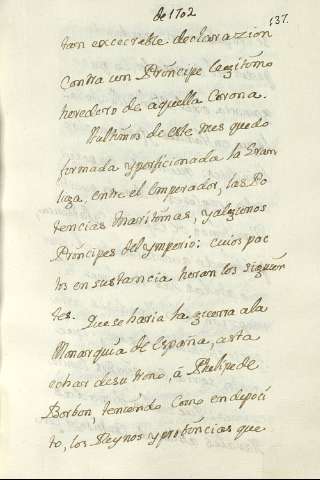 de 1702
137.
tan excecreble declarazion
contra un Prinzipe legitimo
heredero de aquella Corona.
Vultimos de este mes quedo
formada y perficionada la Gran
liga, entre el Emperador, las Po
tencias Maritimas, y algunos
Prinzipes del Ymperio: cuios pac
tos en sustancia heran los siguien
tes. Que se haria la guerra ala
Monarquia de España, asta
echar de su trono, á Phelipe de
Borbon, teniendo como en depoci
to, los Reynos y probincias que